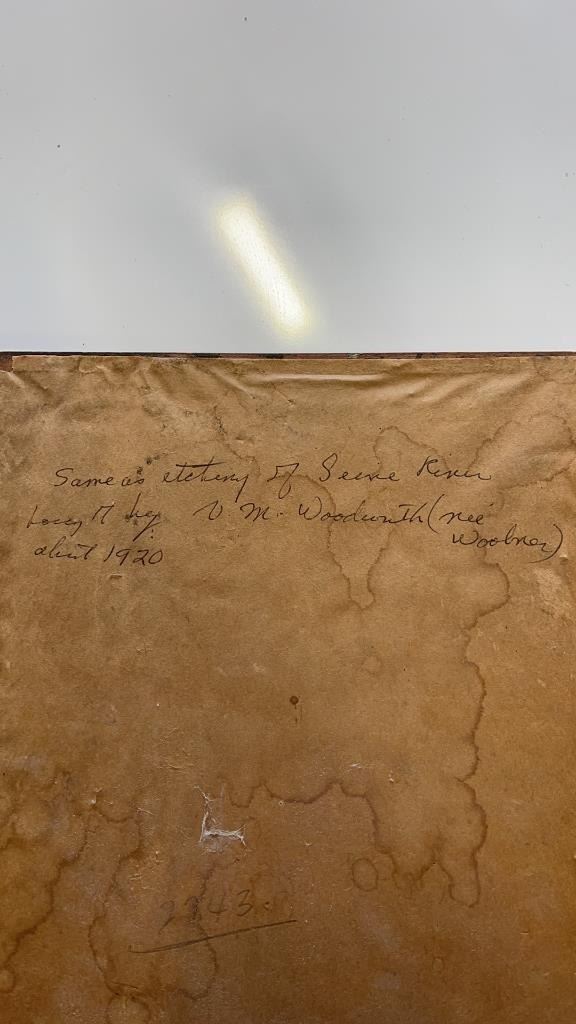 Same as etching of Seine River
bought by V M. Woodworth (neé
Woolner)
about 1920
2243.